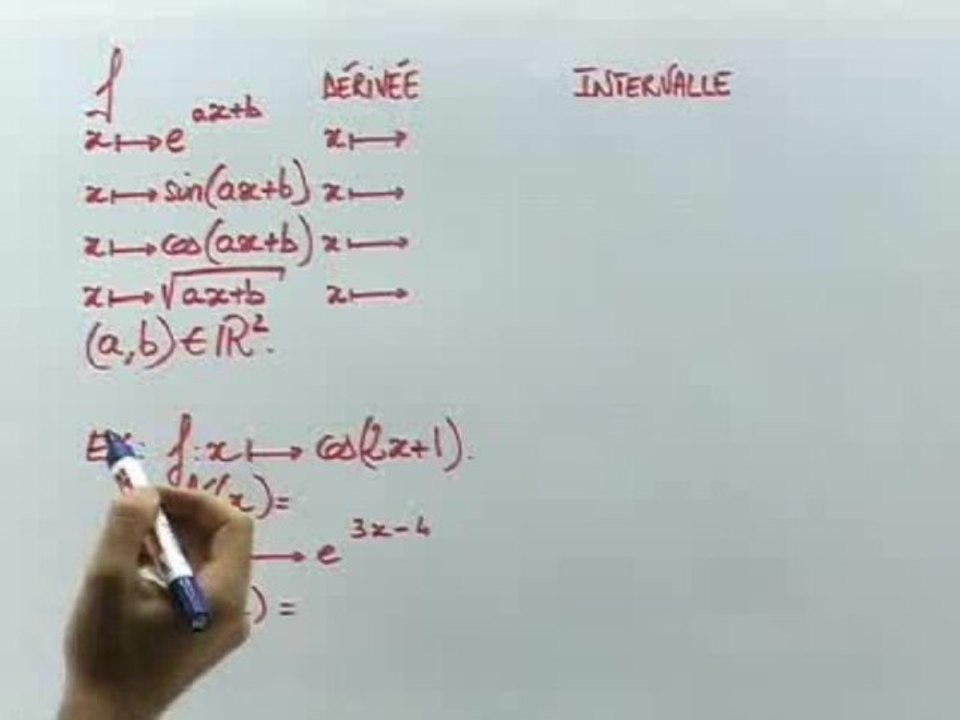 f DÉRIVÉE INTERVALLE
x ⟼ e^{ax+b} x ⟼
x ⟼ sin(ax+b) x ⟼
x ⟼ cos(ax+b) x ⟼
x ⟼ √(ax+b) x ⟼
(a,b) ∈ ℝ².
Ex: f: x ⟼ cos(2x+1).
(x) =
⟶ e^{3x-4}
) =